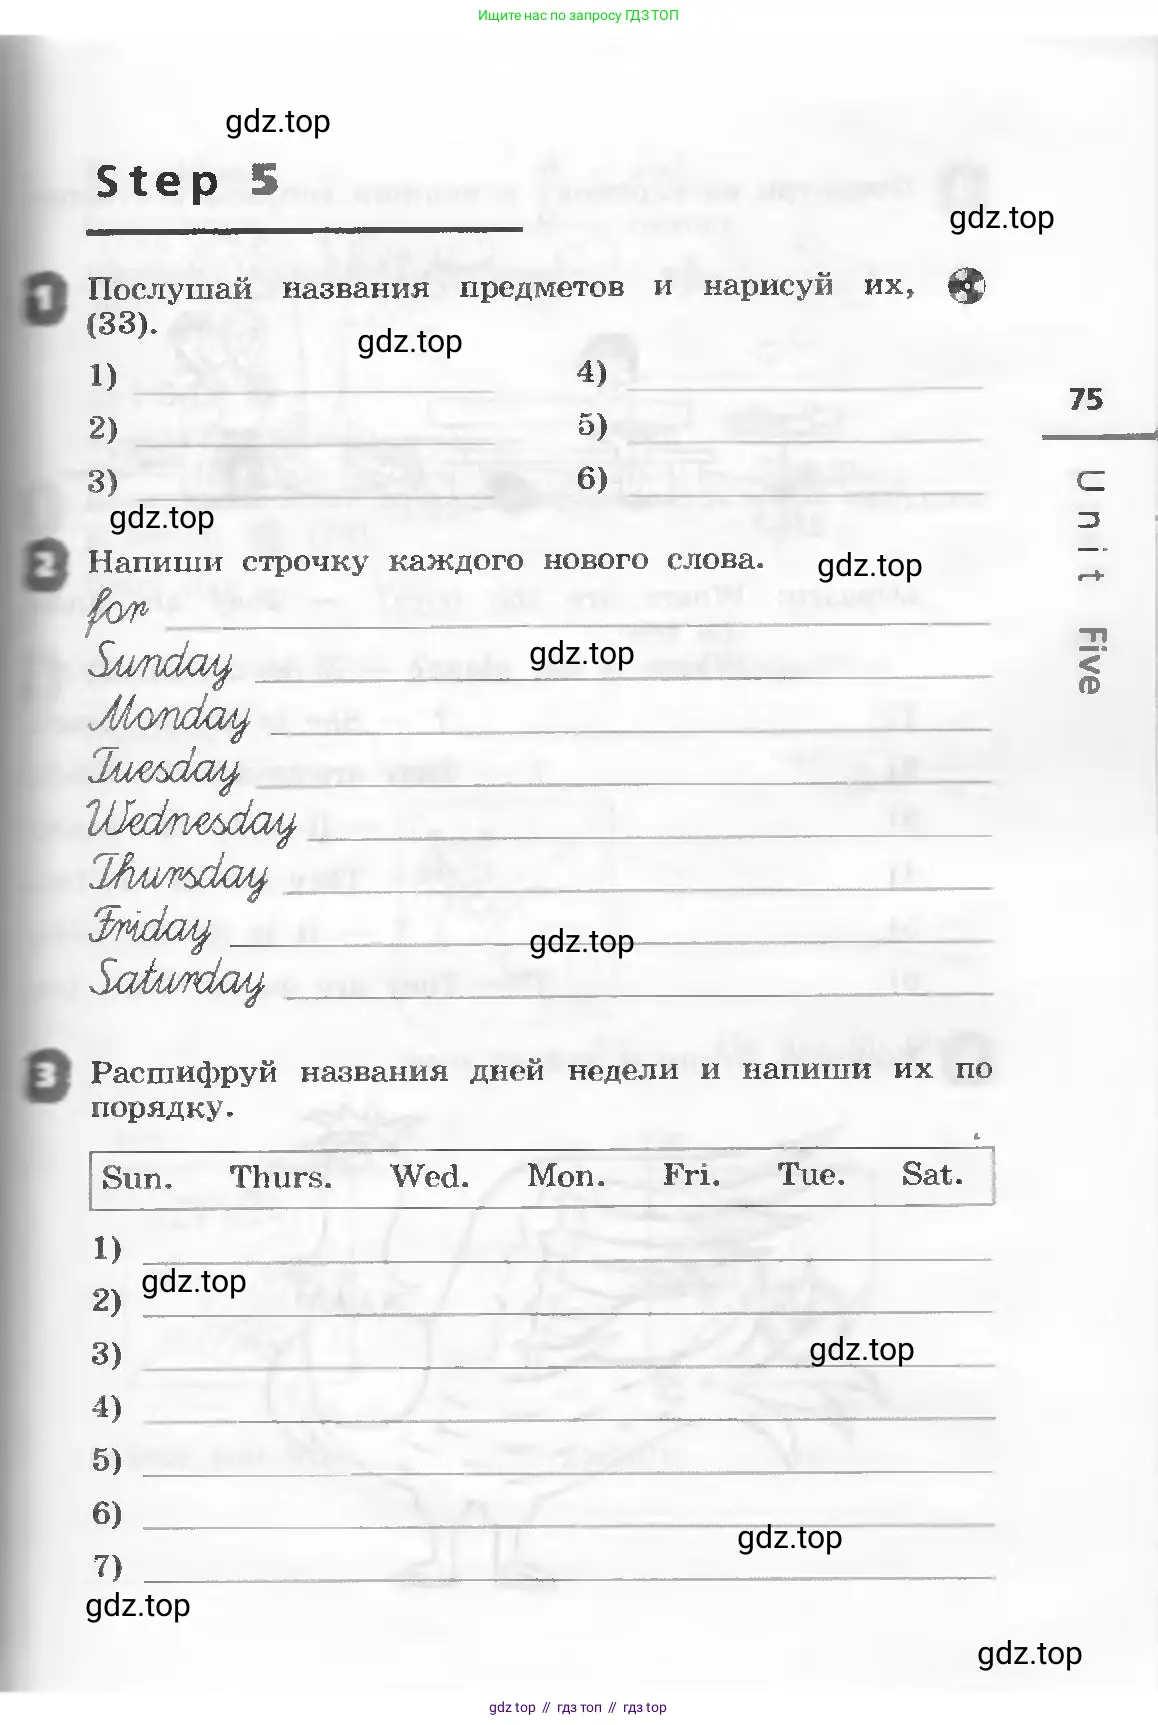 Ищите нас по запросу ГДЗ ТОП
gdz.top
Step 5
gdz.top
1 Послушай названия предметов и нарисуй их,
(33).
gdz.top
1) 4)
75
2) 5)
3) 6)
gdz.top
Unit Five
2 Напиши строчку каждого нового слова.
gdz.top
for
Sunday
gdz.top
Monday
Tuesday
Wednesday
Thursday
Friday
gdz.top
Saturday
3 Расшифруй названия дней недели и напиши их по
порядку.
Sun. Thurs. Wed. Mon. Fri. Tue. Sat.
1)
gdz.top
2)
3)
gdz.top
4)
5)
6)
gdz.top
7)
gdz.top
gdz.top
gdz top // гдз топ // гдз.top